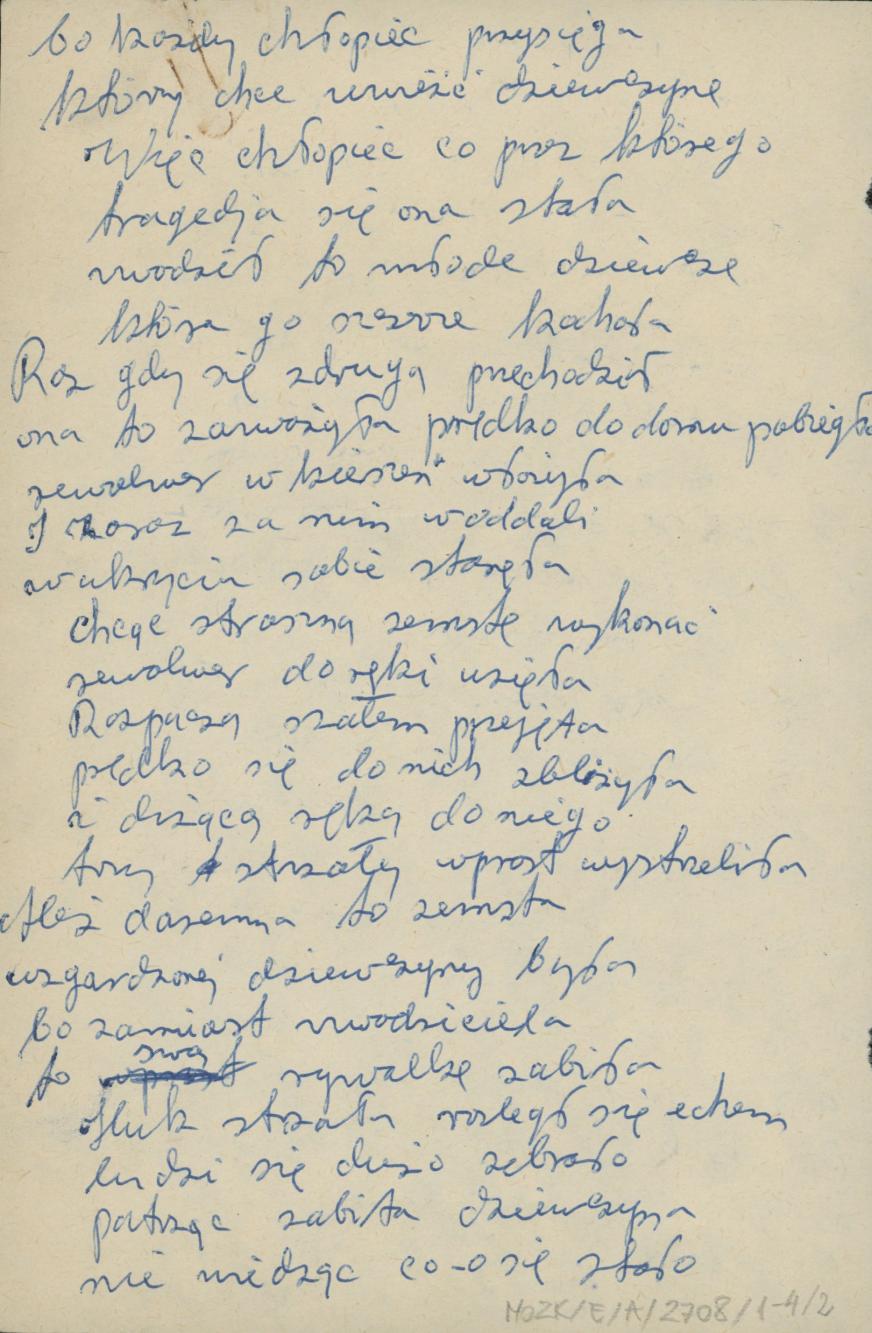 bo każdy chłopiec przysięga
który chce uwieść dziewczynę
Więc chłopiec co prez którego
tragedja się ona stała
uwodził to młode dziewcze
która go szczerze kachała
Raz gdy się zdrugą przechodził
ona to zauważyła prędko do domu pobiegła
rewolwer w kieszeń włożyła
I zaraz za nim woddali
wukryciu sobie stanęła
chcąc straszną zemstę wykonać
rewolwer do ręki wzięła
Rozpaczą szałem przejęta
prędko się do nich zbliżyła
i drżącą ręką do niego
trzy strzały wprost wystrzeliła
Ależ daremna to zemsta
wzgardzonej dziewczyny była
bo zamiast uwodziciela
to swą rywalkę zabiła
Huk strzału rozległ się echem
ludzi się dużo zebrało
patrząc zabita dziewczyna
nie wiedząc co-o się stało
MOZK/E/A/2708/1-4/2